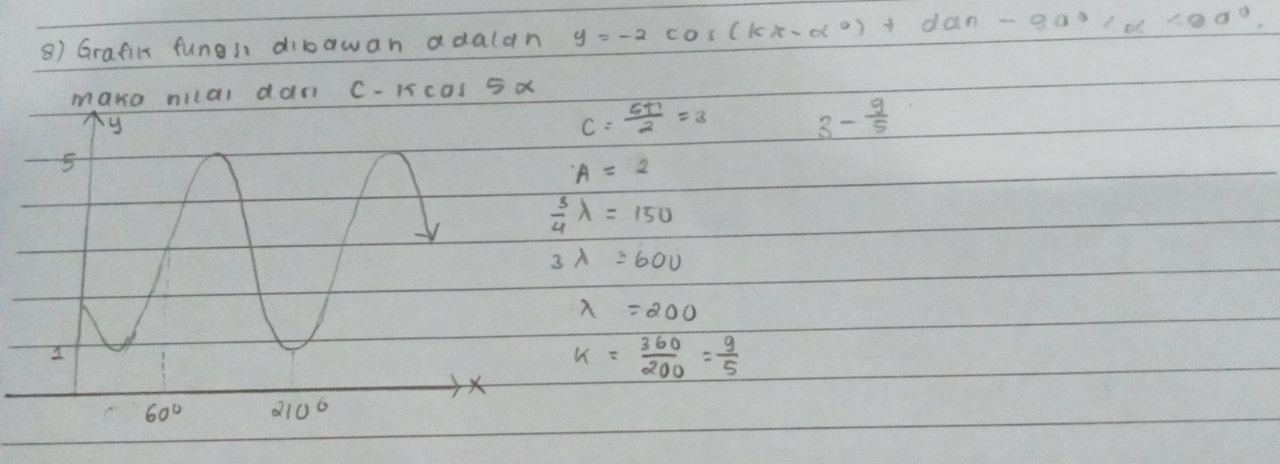 8) Grafik fungsi dibawah adalah y = -2 cos (kx - α°) + dan - 90° < α < 90°.
maka nilai dari C - K cos 5 α
y
5
1
60°
210°
x
C = 5+1/2 = 3
A = 2
3/4 λ = 150
3 λ = 600
λ = 200
K = 360/200 = 9/5
3 - 9/5